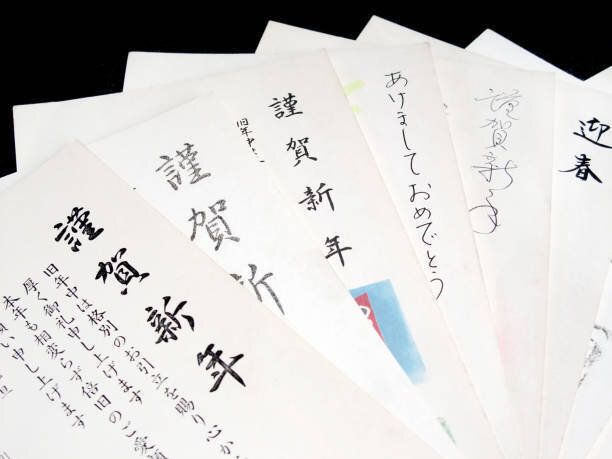 謹賀新年
旧年中は格別のお引立を賜り心か
厚く御礼申し上げます
本年も相変らず倍旧のご愛
願い申し上げます
旦
謹賀新
謹賀新年
旧年中
あけましておめでとう
謹賀新年
迎春